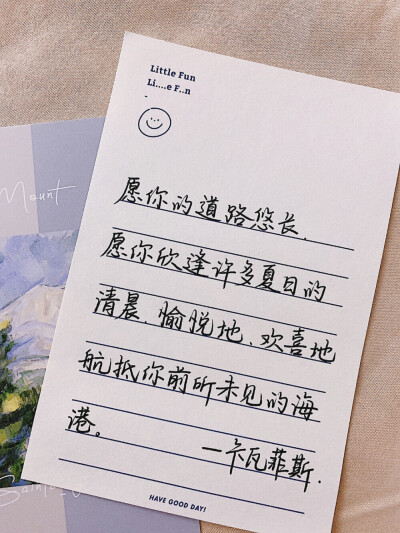 Little Fun
Li....e F..n
愿你的道路悠长.
愿你欣逢许多夏日的
清晨.愉悦地.欢喜地
航抵你前所未见的海
港。
一卡瓦菲斯.
HAVE GOOD DAY!
Mount
Sainte